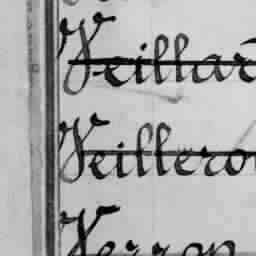 Veillar
Veillero
Verron